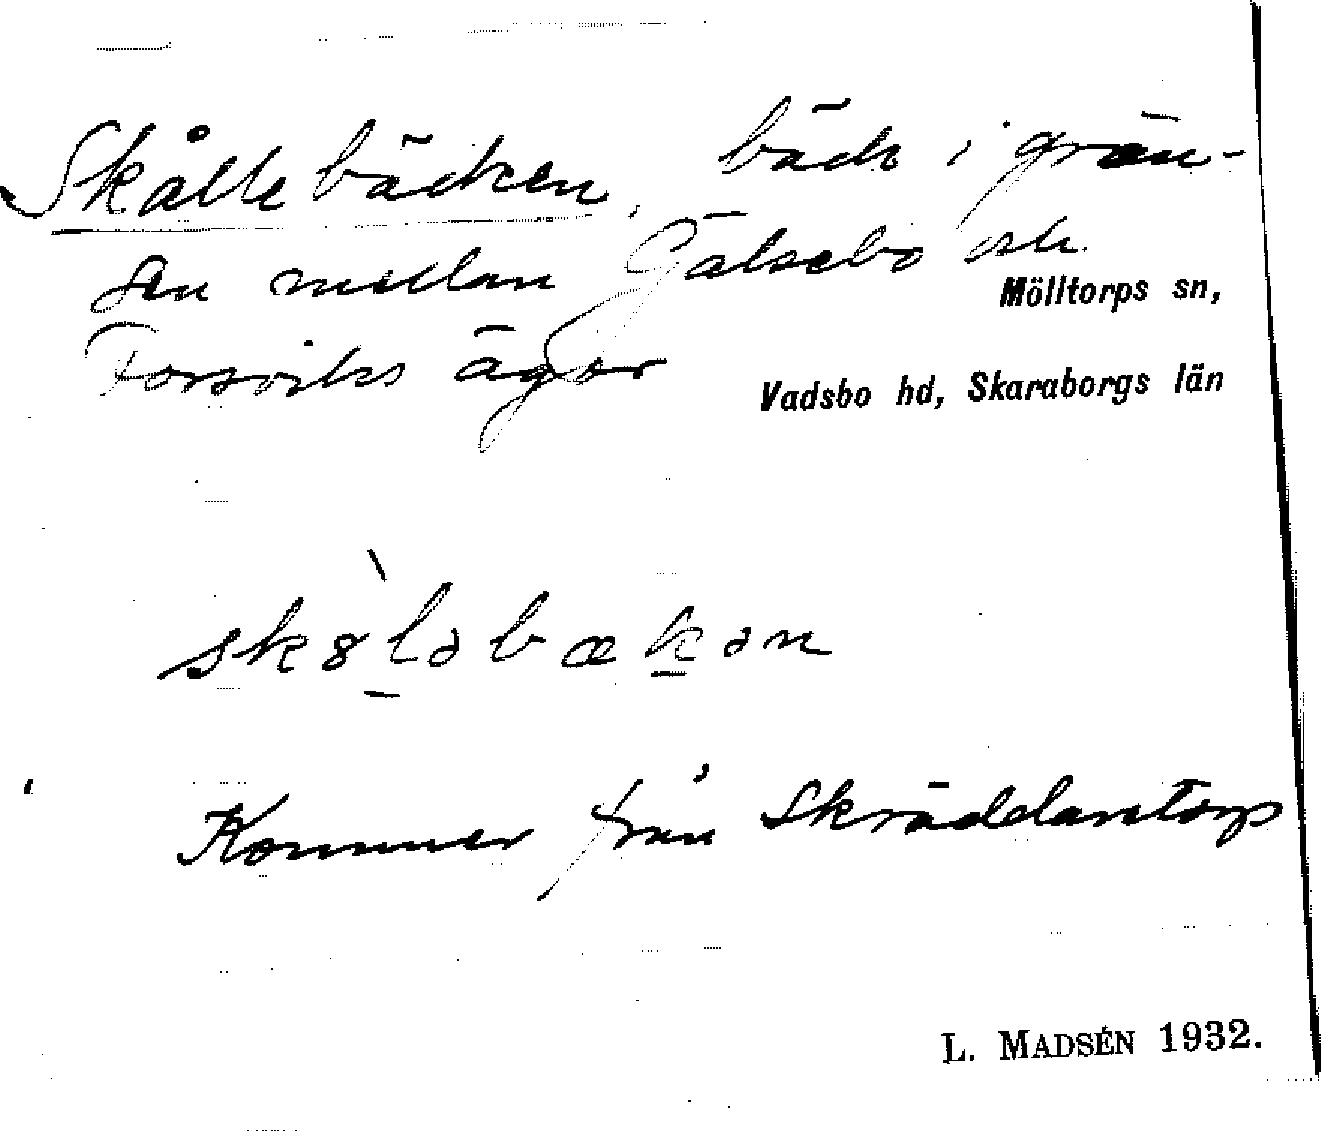 Skållebäcken, bäck i grän-
sen mellan Gälsebo och
Mölltorps sn,
Forsviks ägor
Vadsbo hd, Skaraborgs län
Kommer från Skräddaretorp
L. MADSÉN 1932.